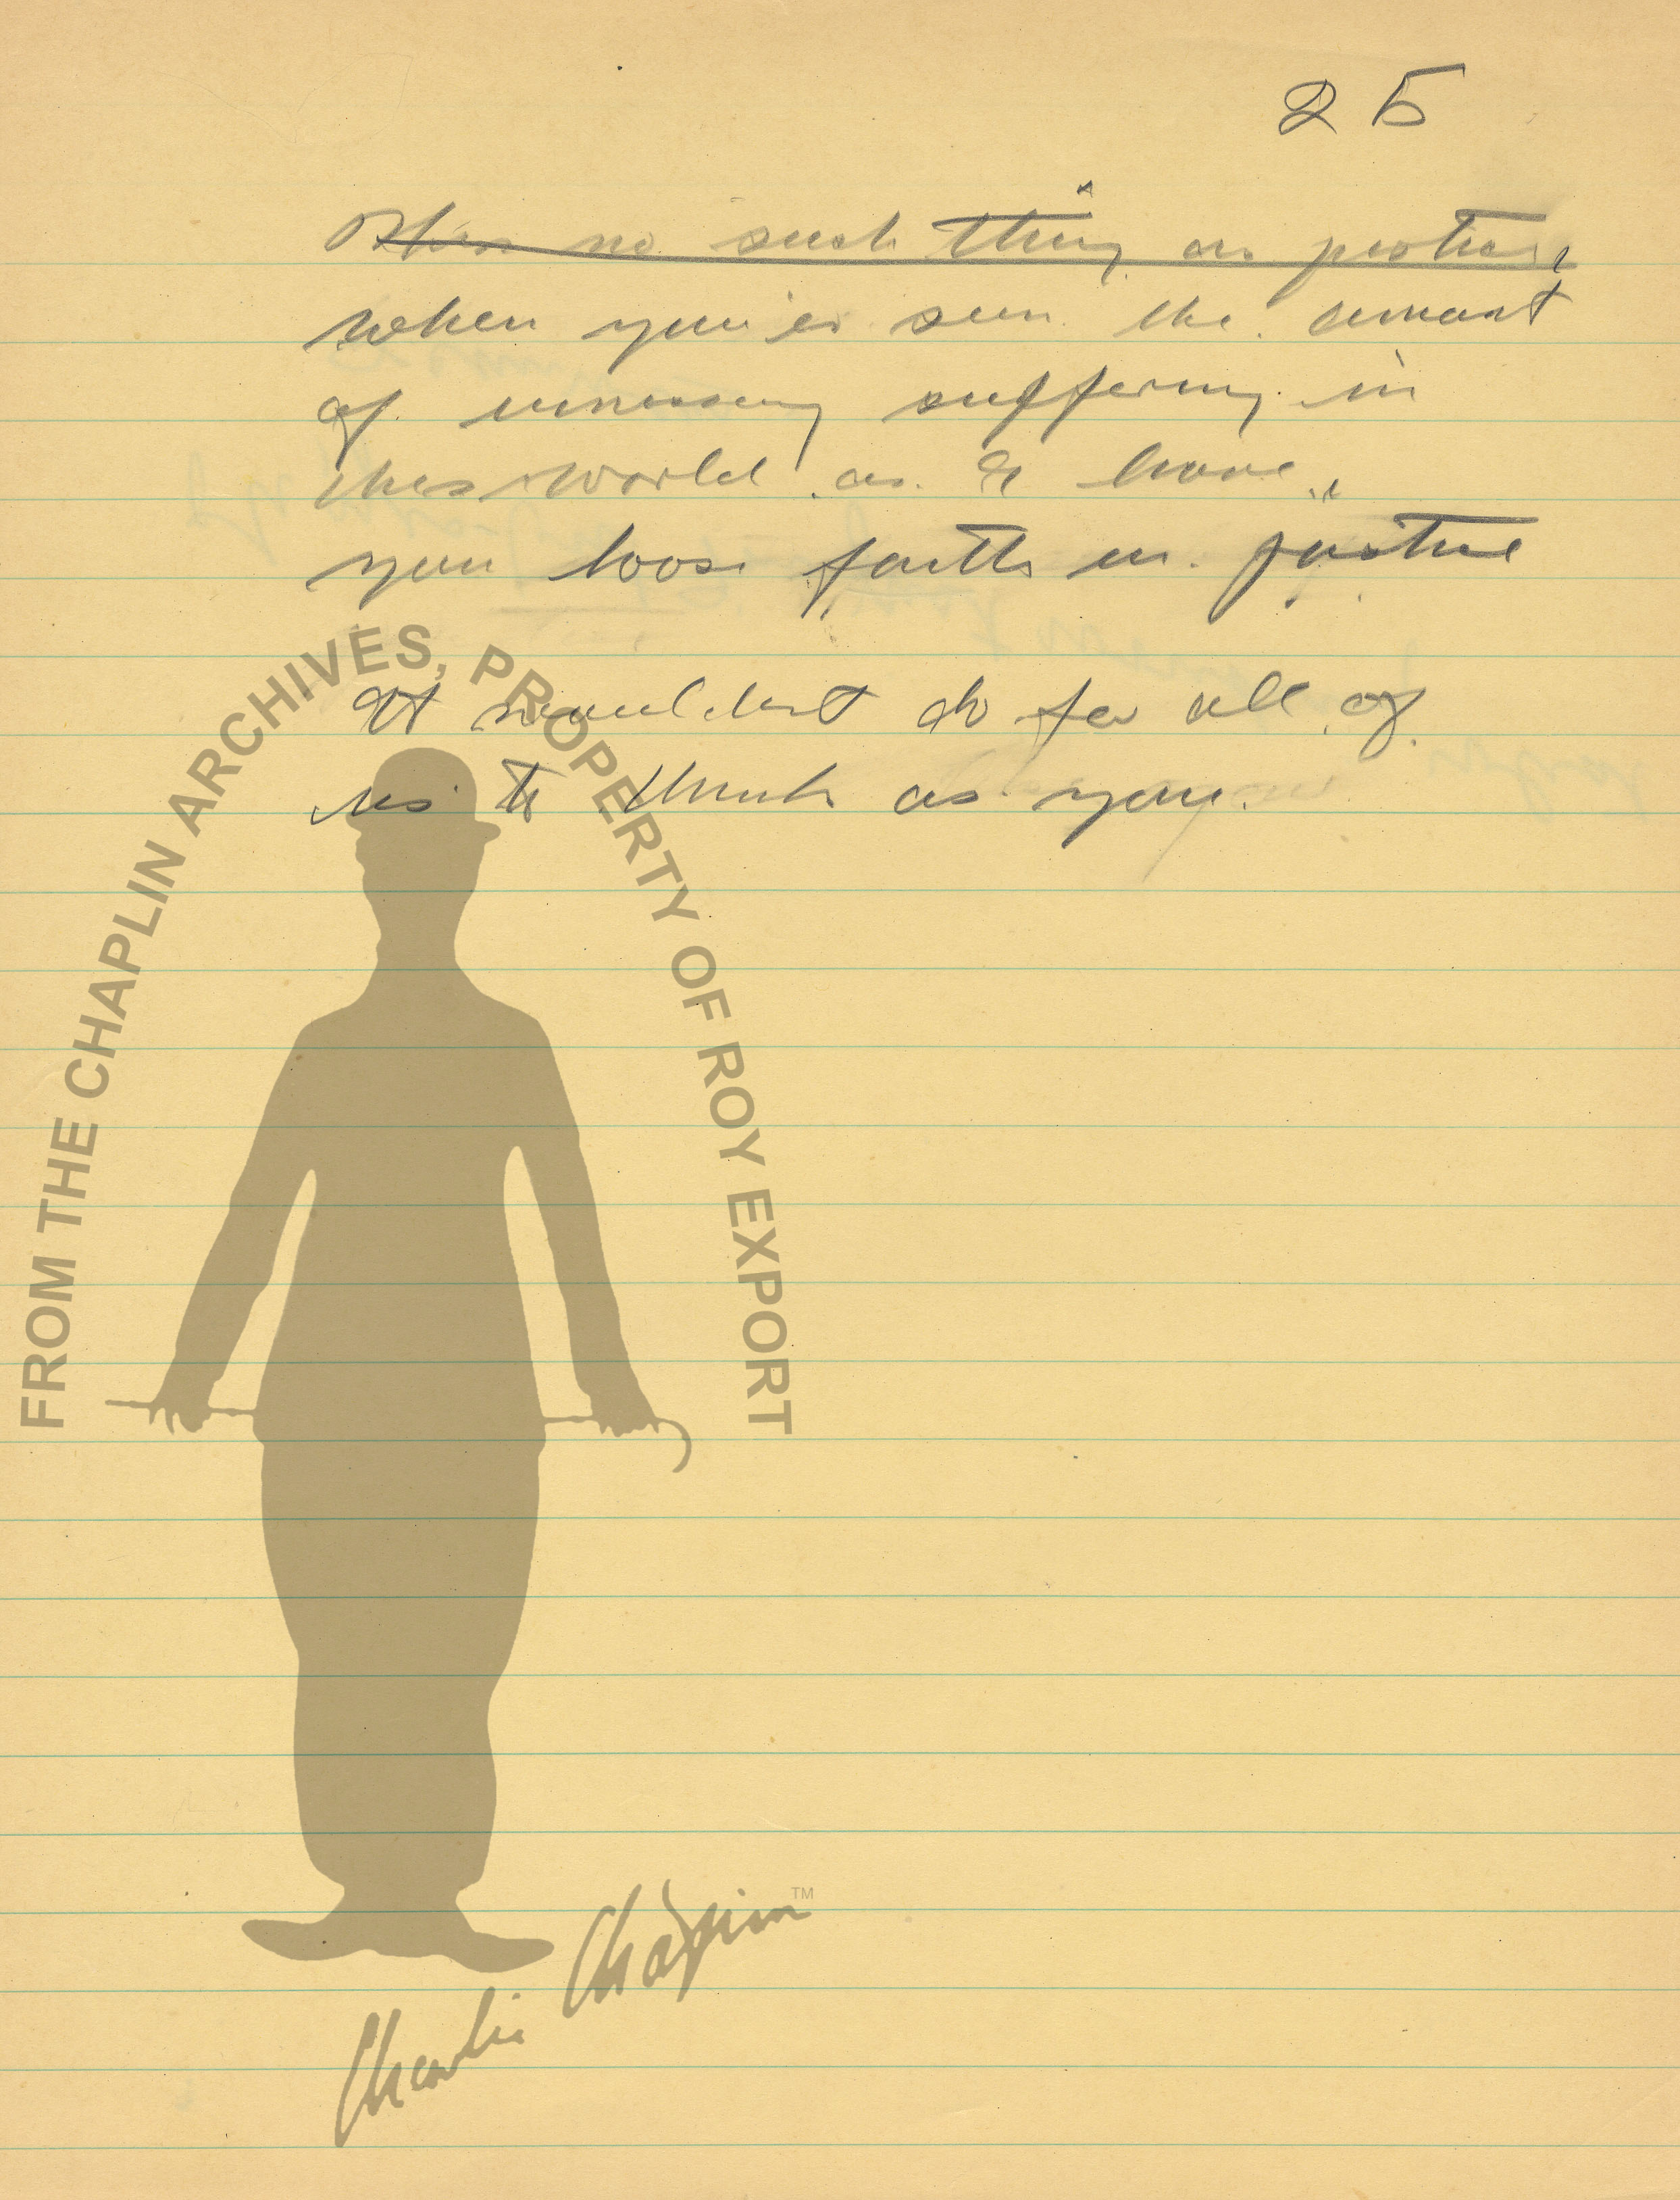 25
Theres no such thing as justice,
when you've seen the amount
of unnessary suffering in
this world as I have,
you loose faith in justice
It wouldent do for all of
us to think as you.
FROM THE CHAPLIN ARCHIVES, PROPERTY OF ROY EXPORT
Charlie Chaplin TM